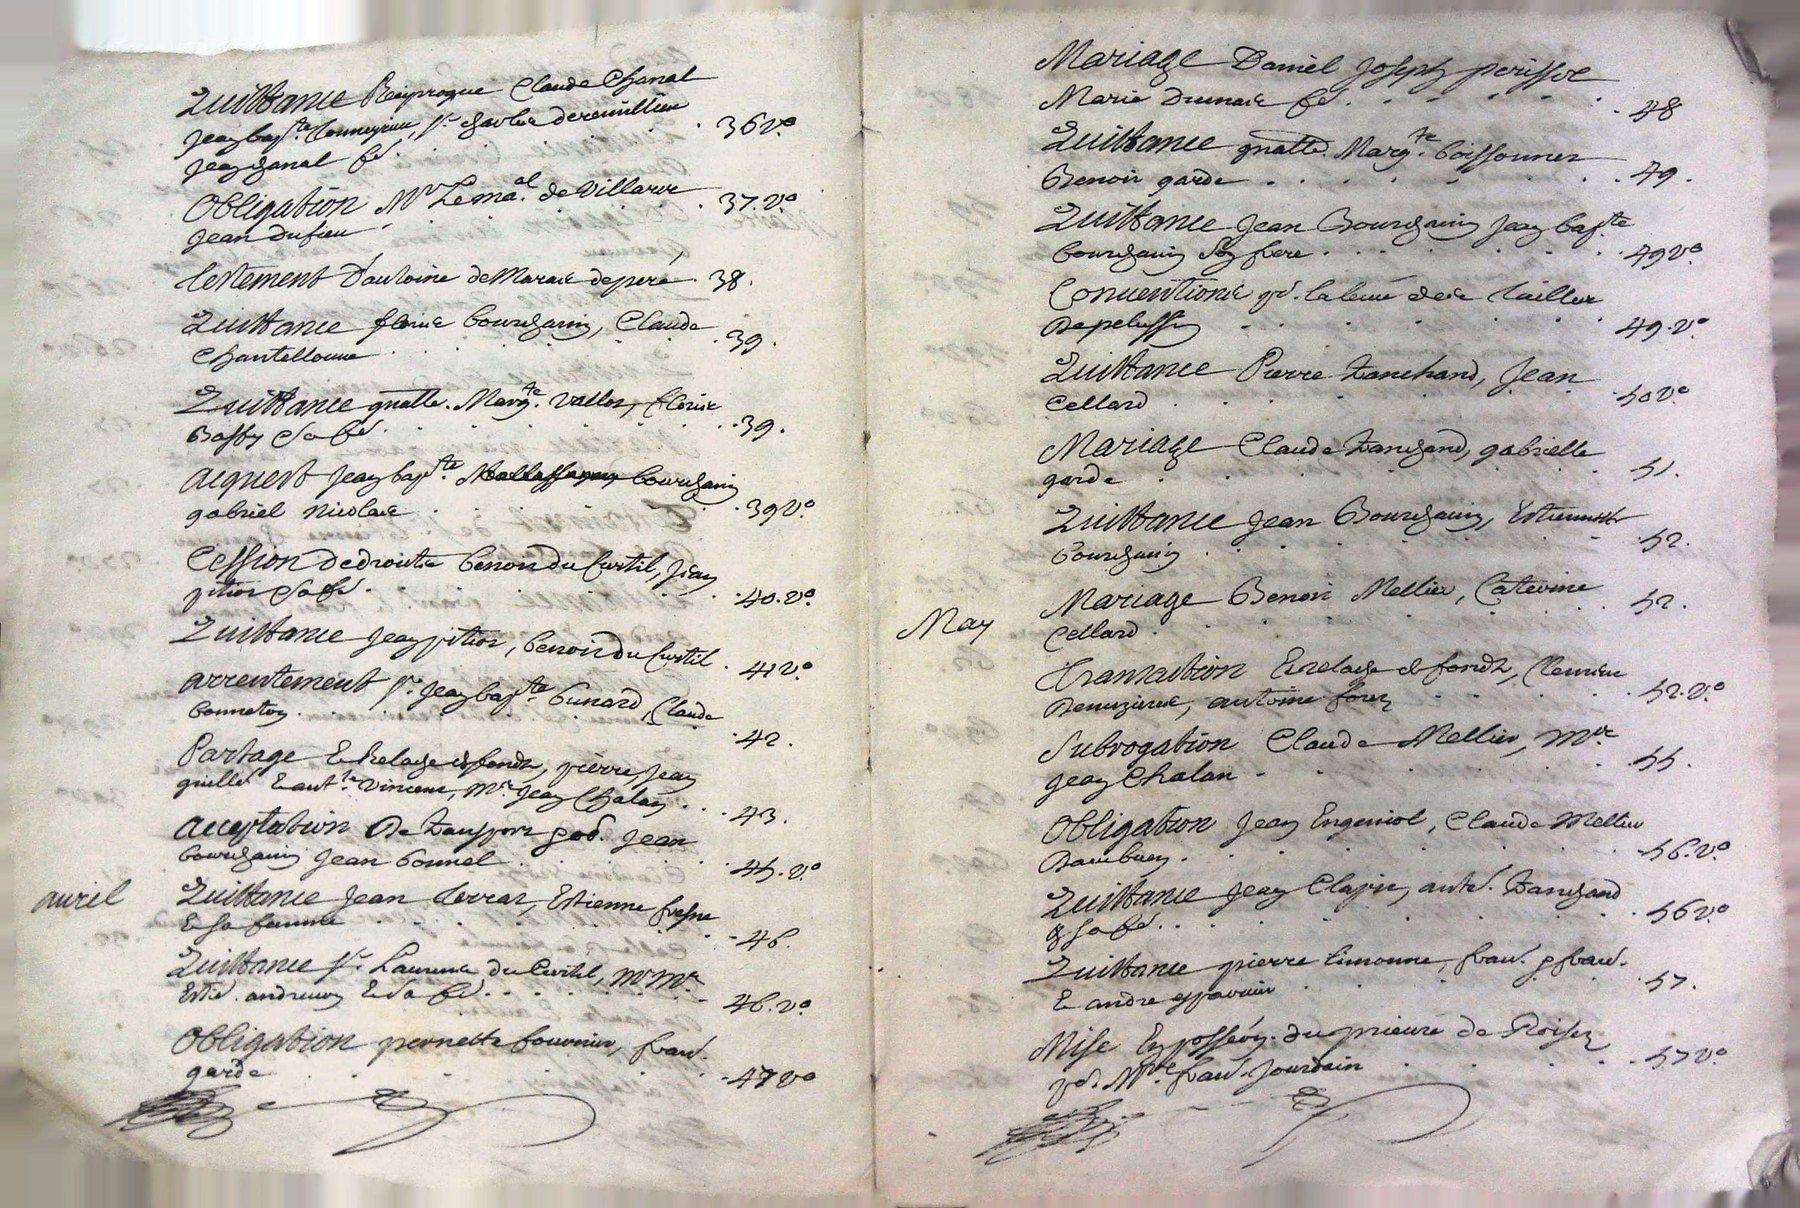 Quittance Reciproque Claude Chanal
Jean bapte. , Sr. Charles deremillieu
Jean Chanal &c. 36 vo.
Obligation Mr Lemal. de Villars
Jean Dufieu 37. vo.
testement D'antoine de Maras depéré 38.
Quittance fleurie Courchany, Claude
Chantellouve 39.
Quittance gnalle. Margte. Vallos, fleurie
Basty Sa fe. 39.
acquest Jean bapte. bourchany
gabriel Nicolas 39 Vo.
Cession de droits benoit du Curtil, Jean
pitiot Sa fe. 40. vo.
Quittance Jean pitiot, benoit du Curtil. 41 vo.
arrentement Sr. Jean bapte. bunard, Claude
bonneton 42.
Partage Relache & fonds, pierre, Jean
guillet & antte. Vincent, Mr. Jean Chalan 43.
acceptation De transport pod. Jean
bourchany Jean bonnel 45. vo.
avril
Quittance Jean terras, Estienne fresne
& sa femme 46.
Quittance Sr. Laurens du Curtil, Mr Mre.
Estie. andrevon & Sa fe. 46. vo.
Obligation pernette fournier, fran.
garde 47 vo
Mariage Daniel Joseph perissol
Marie Dumas fe. 48
Quittance gnalle. Margte. boissonnes
Benoit garde 49.
Quittance Jean Bourchany Jean bapte
bourchany Son frere 49 vo.
Conventions pr. la levée des tailles
De pelussin 49. vo.
Quittance Pierre tranchand, Jean
Cellard 50 vo.
Mariage Claude tranchand, gabrielle
garde 51.
Quittance Jean Bourchany, Estiennette
bourchany 52.
May
Mariage Benoit Mellier, Caterine
Cellard 52.
Transaction Relache & fonds, Clemence
Demezieres, antoine forez 52. vo.
Subrogation Claude Mellier, Mre.
Jean Chalan 55.
Obligation Jean Engeniol, Claude Mellier
56. vo.
Quittance Jean Clapier, anto. tranchand
& sa fe. 56 vo
Quittance pierre timonne, fran. & fran.
& andre 57.
Mise En possèon. du prieuré de Roisey
pr. Mre. fran. Jourdain 57 vo